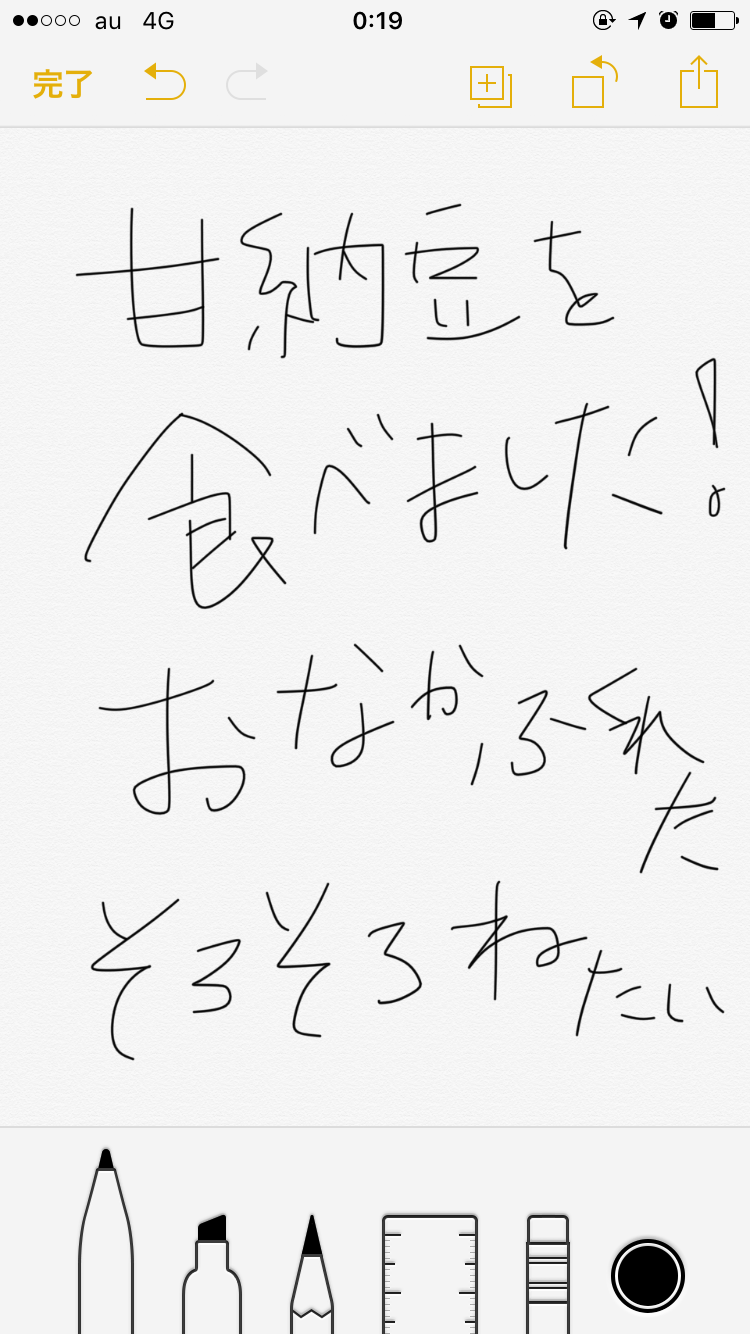 au 4G 0:19
完了
甘納豆を
食べました!
おなかふくれ
た
そろそろねたい